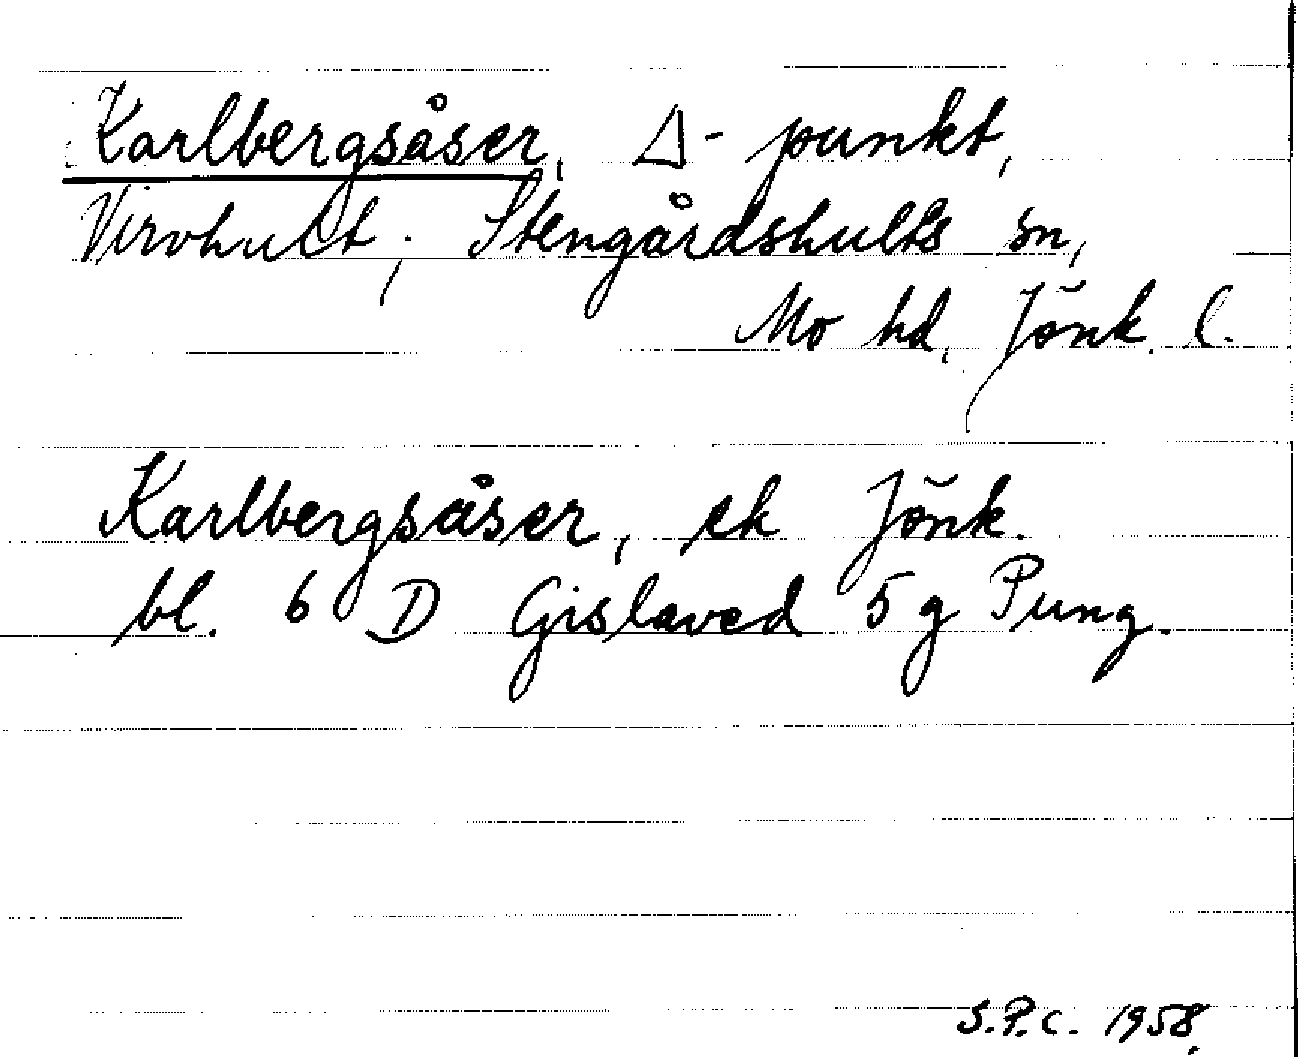 Karlbergsåser, Δ-punkt,
Virvhult, Stengårdshults sn,
Mo hd, Jönk. l.
Karlbergsåser, ek Jönk.
bl. 6 D Gislaved 5 g Pung.
S.P.C. 1958.